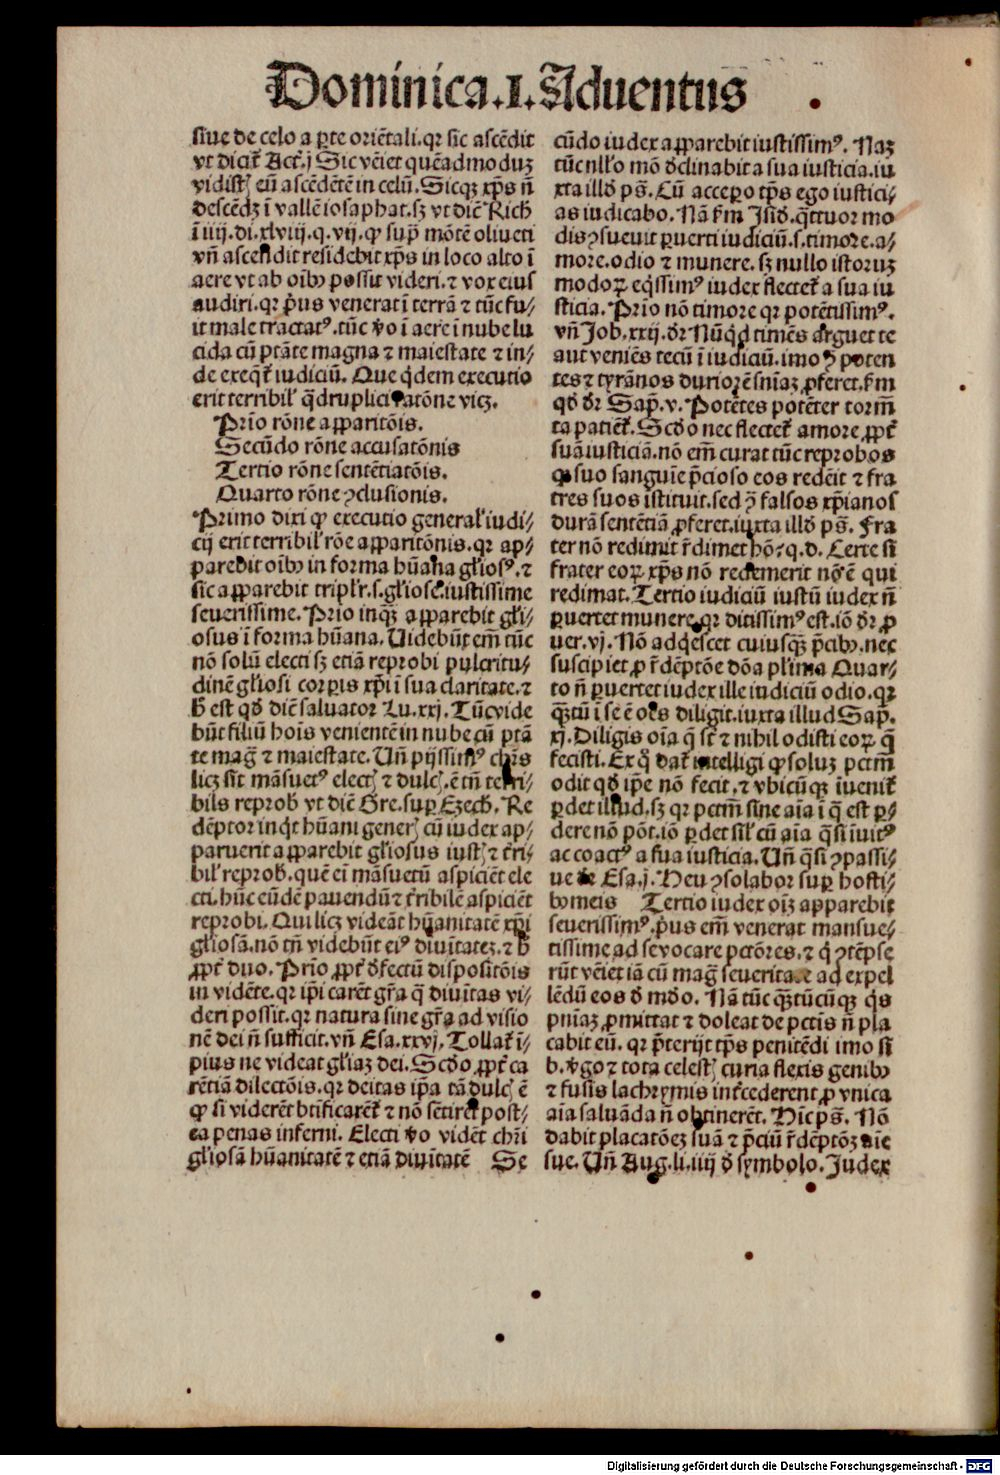 Dominica .I. Aduentus
siue de celo a ꝑte oriẽtali. qꝛ sic ascẽdit
vt dicit᷑ Act᷑.j Sic vẽiet quẽadmoduꝫ
vidistꝭ eũ ascẽdẽtẽ in celũ. Sicqꝫ xp̃s ñ
descẽdꝫ ĩ vallẽ iosaphat. sꝫ vt diẽ Rich̃
ĩ iiij. di. xlviij. q. vij. ꝙ sup̃ mõtẽ oliueti
vñ ascendit residebit xp̃s in loco alto ĩ
aere vt ab oĩbꝰ possit videri. ⁊ vox eius
audiri. qꝛ p̃us venerat ĩ terrã ⁊ tũc fu/
it male tractatꝰ. tũc ꝟo ĩ aere ĩ nube lu
cida cũ ptãte magna ⁊ maiestate ⁊ in/
de exeq̃t᷑ iudiciũ. Que q̇dem executio
erit terribil' q̃druplici ratõne vicꝫ.
Prĩo rõne apparitõis.
Secũdo rõne accusatõnis
Tertio rõne sentẽtiatõis.
Quarto rõne ↄclusionis.
Primo dixi ꝙ executio general' iudi/
cij erit terribil' rõe apparitõnis. qꝛ ap/
parebit oĩbꝰ in forma hũana gl'iosꝰ. ⁊
sic apparebit tripl'r. s. gl'iose. iustissime
seuerissime. Prĩo inqꝫ apparebit gl'i/
osus ĩ forma hũana. Uidebũt em̃ tũc
nõ solũ electi sꝫ etiã reprobi pulcritu/
dinẽ gl'iosi corꝑis xp̃i ĩ sua claritate. ⁊
h̃ est qd̃ diẽ saluator Lu. xxj. Tũc vide
bũt filiũ hoĩs venientẽ in nube cũ ptã
te mag̃ ⁊ maiestate. Uñ pijssimꝰ chr̃s
licꝫ sit mãsuetꝰ electꝭ ⁊ dulcꝭ. ẽ tñ terri/
bil's reprob̃ vt diẽ Gre. suꝑ Ezech̃. Re
dẽptor inq̇t hũani generꝭ cũ iudex ap/
paruerit apparebit gl'iosus iustꝭ ⁊ t᷑ri/
bil' reprob̃. quẽ ei mãsuetũ aspiciẽt ele
cti. hũc eũdẽ pauendũ ⁊ t᷑ribilẽ aspiciẽt
reprobi. Qui licꝫ videãt hũanitatẽ xp̃i
gl'iosã. nõ tñ videbũt eiꝰ diuĩtateꝫ. ⁊ h̃
ꝓpt᷑ duo. Prĩo ꝓpt᷑ d̃fectũ dispositõis
in vidẽte. qꝛ ip̃i carẽt gr̃a q̃ diuĩtas vi/
deri possit. qꝛ natura sine gr̃a ad visio
nẽ dei ñ sufficit. vñ Esa. xxvj. Tollat᷑ ĩ/
pius ne videat gl'iaꝫ dei. Scd̃o ꝓpt᷑ ca
rẽtiã dilectõis. qꝛ deitas ip̃a tã dulcꝭ ẽ
ꝙ si viderẽt btĩficarẽt᷑ ⁊ nõ sẽtirẽt post/
ea penas inferni. Electi ꝟo vidẽt chr̃i
gl'iosã hũanitatẽ ⁊ etiã diuĩtatẽ Se
cũdo iudex apparebit iustissimꝰ. Naꝫ
tũc nll'o mõ d̃clinabit a sua iusticia. iu
xta ill'd p̃s. Cũ accepo tp̃s ego iustici/
as iudicabo. Nã ẜm Isid̃. q̃ttuor mo
dis ↄsueuit ꝑuerti iudiciũ. s. timore. a/
more. odio ⁊ munere. sꝫ nullo istoruꝫ
modoꝝ eq̇ssimꝰ iudex flectet᷑ a sua iu
sticia. Prĩo nõ timore qꝛ potẽtissimꝰ.
vñ Job. xxij. d̃r Nũq̇d timẽs arguet te
aut veniẽs tecũ ĩ iudiciũ. imo ↄ̃ poten
tes ⁊ tyrãnos duriorẽ sñiaꝫ ꝓferet. ẜm
qd̃ d̃r Sap̃. v. Potẽtes potẽter torm̃
ta patiẽt᷑. Scd̃o nec flectet᷑ amore ꝓpt᷑
suã iusticiã. nõ em̃ curat tũc reprobos
ꝙ suo sanguĩe p̃cioso eos redẽit ⁊ fra
tres suos ĩstituit. sed ↄ̃ falsos xp̃ianos
durã sentẽtiã ꝓferet. iuxta ill'd p̃s. Fra
ter nõ redimit r̃dimet hõ? q. d. Certe si
frater eoꝝ xp̃s nõ redemerit nõ ẽ qui
redimat. Tertio iudiciũ iustũ iudex ñ
ꝑuertet munere. qꝛ ditissimꝰ est. iõ d̃r ꝓ
uer. vj. Nõ adq̇escet cuiusq̃ꝫ p̃cibꝰ. nec
suscipiet ꝓ r̃dẽptõe dõa pl'ima Quar/
to ñ ꝑuertet iudex ille iudiciũ odio. qꝛ
q̃ꝫtũ ĩ se ẽ oẽs diligit. iuxta illud Sap̃.
xj. Diligis oĩa q̃ st̃ ⁊ nihil odisti eoꝝ q̃
fecisti. Ex q̊ dat᷑ intelligi ꝙ soluꝫ pctm̃
odit qd̃ ip̃e nõ fecit. ⁊ vbicũqꝫ ĩuenit᷑
ꝑdet illud. sꝫ qꝛ pctm̃ sine aĩa ĩ q̃ est ꝑ/
dere nõ põt. iõ ꝑdet sil' cũ aĩa q̃si ĩuitꝰ
ac coactꝰ a sua iusticia. Uñ q̃si ↄpassi/
ue de Esa. j. Heu ↄsolabor suꝑ hosti/
bꝰ meis Tertio iudex oĩꝫ apparebit
seuerissimꝰ. p̃us em̃ venerat mansue/
tissime ad se vocare pctõres. ⁊ q̇ ↄtẽpse
rũt vẽiet iã cũ mag̃ seueritate ad expel
lẽdũ eos d̃ mũdo. Nã tũc q̃ꝫtũcũqꝫ q̇s
pñiaꝫ ꝓmittat ⁊ doleat de pctĩs ñ pla
cabit eũ. qꝛ p̃terijt tp̃s penitẽdi imo si
b. ꝟgo ⁊ tota celestꝭ curia flexis genibꝰ
⁊ fusis lachrymis int᷑cederent ꝓ vnica
aĩa saluãda ñ obtinerẽt. Hĩc p̃s. Nõ
dabit placatõeꝫ suã ⁊ p̃ciũ r̃dẽptõꝫ aĩe
sue. Uñ Aug. li. iiij d̃ symbolo. Iudex
Digitalisierung gefördert durch die Deutsche Forschungsgemeinschaft - DFG